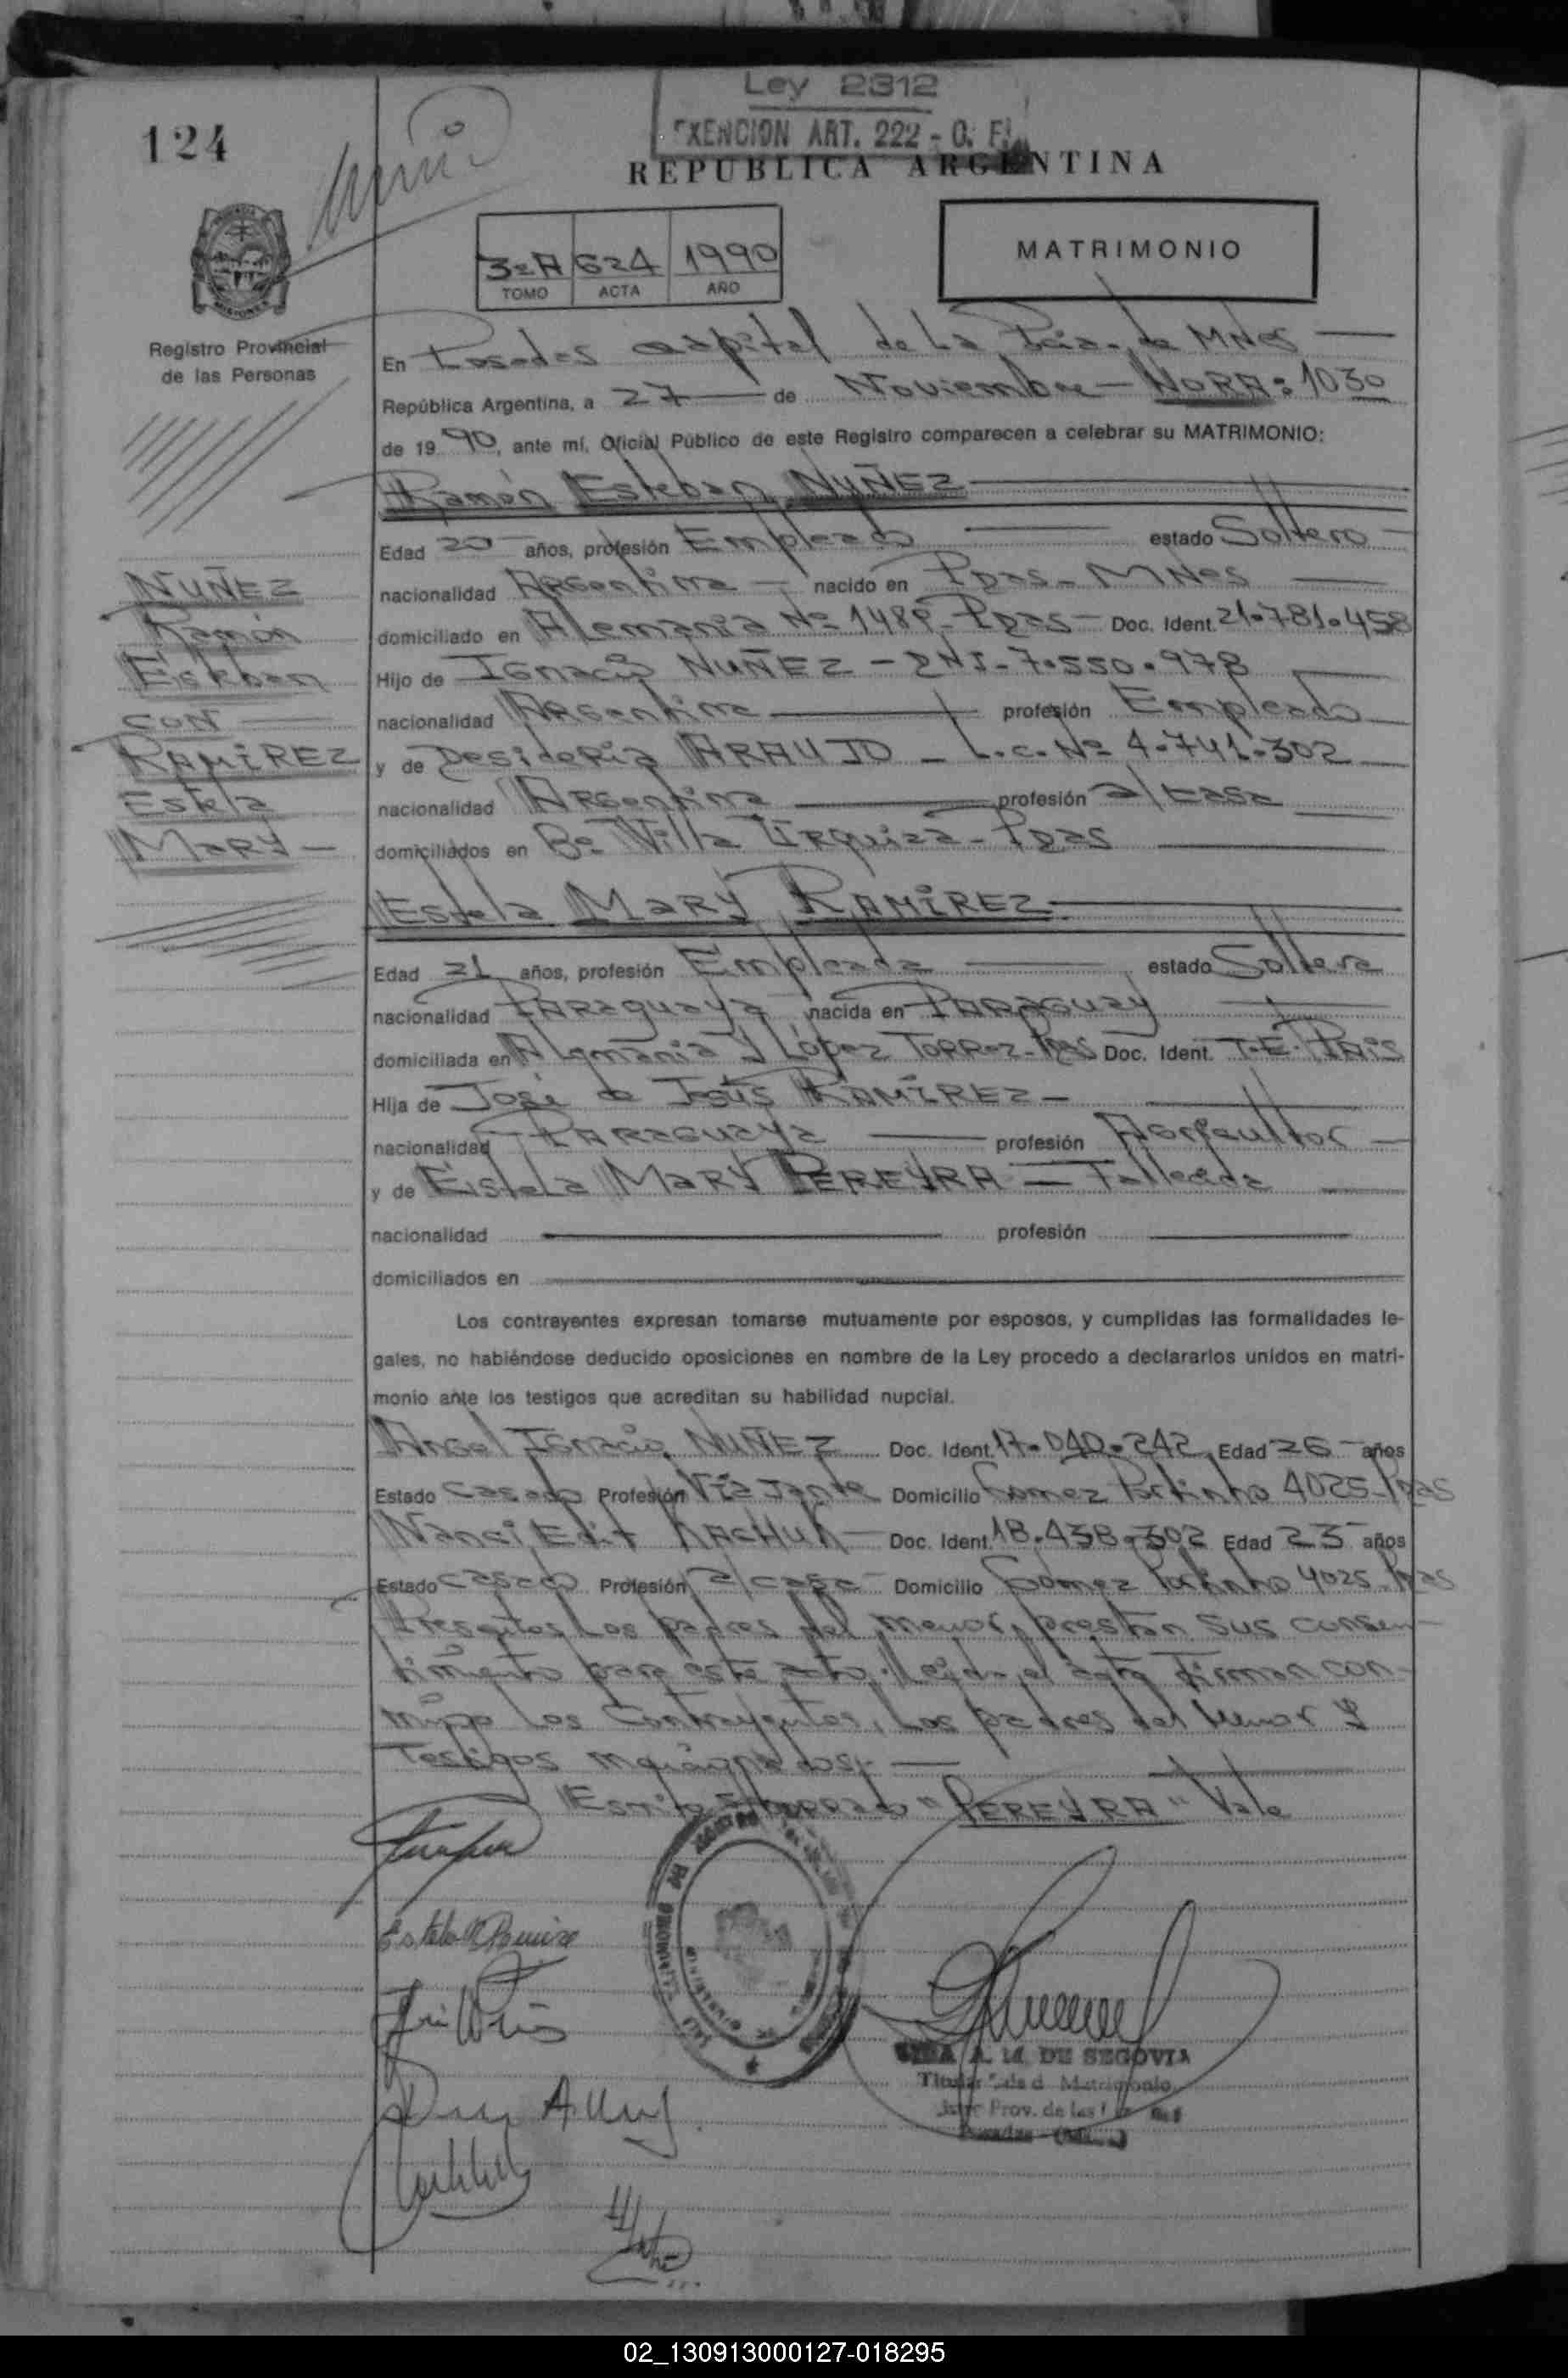 Ley 2312
EXENCION ART. 222 - C. F.
124
REPUBLICA ARGENTINA
3º A 624 1990
TOMO ACTA AÑO
MATRIMONIO
Registro Provincial
de las Personas
En Posadas capital de La Pcia. de MNes
República Argentina, a 27 de Noviembre - HORA: 1030
de 1990, ante mí, Oficial Público de este Registro comparecen a celebrar su MATRIMONIO:
Ramón Esteban NUÑEZ
Edad 20 años, profesión Empleado estado Soltero
nacionalidad Argentina nacido en Pdas - MNes
domiciliado en Alemania Nº 1489 - Pdas - Doc. Ident. 21.781.458
Hijo de Ignacio NUÑEZ - DNI - 7.550.978
nacionalidad Argentina profesión Empleado
y de Desideria ARAUJO - L.c. Nº 4.741.302
nacionalidad Argentina profesión a/casa
domiciliados en Bº Villa Urquiza - Pdas
NUÑEZ
Ramón
Esteban
CON
RAMIREZ
Estela
MARY -
Estela MARY RAMIREZ
Edad 21 años, profesión Empleada estado Soltera
nacionalidad PARAguaya nacida en PARAGUAY
domiciliada en Alemania y López Torres - Pdas Doc. Ident. T.E. País
Hija de José de Jesús RAMIREZ -
nacionalidad PARAGUAYA profesión Agricultor
y de Estela MARY PEREYRA - Fallecida
nacionalidad profesión
domiciliados en
Los contrayentes expresan tomarse mutuamente por esposos, y cumplidas las formalidades le-
gales, no habiéndose deducido oposiciones en nombre de la Ley procedo a declararlos unidos en matri-
monio ante los testigos que acreditan su habilidad nupcial.
Angel Ignacio NUÑEZ Doc. Ident. 17.040.242 Edad 26 años
Estado Casado Profesión Viajante Domicilio Gomez Portinho 4025 - Pdas
Nanci Edit KACHUK - Doc. Ident. 18.438.302 Edad 23 años
Estado casada Profesión a/casa Domicilio Gomez Portinho 4025 - Pdas
Presentes Los padres del menor, prestan sus consen-
timiento para este acto. Leída el acta Firman con-
migo Los Contrayentes, Los padres del Menor y
Testigos mencionados -
Escrito S/borrado "PEREYRA" Vale
Estela M Ramirez
A. M. DE SEGOVIA
Titular Matrimonio
Prov. de las
Posadas
02_130913000127-018295